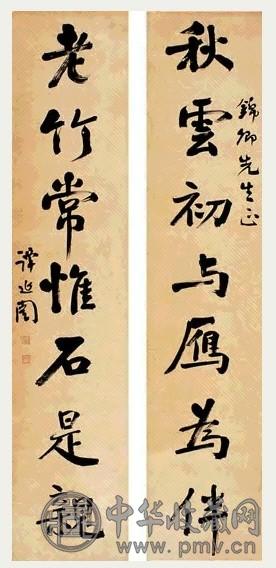 錦卿先生正
秋雲初与雁為伴
老竹常惟石是親
譚延闓
中华收藏网
www.pmv.cn